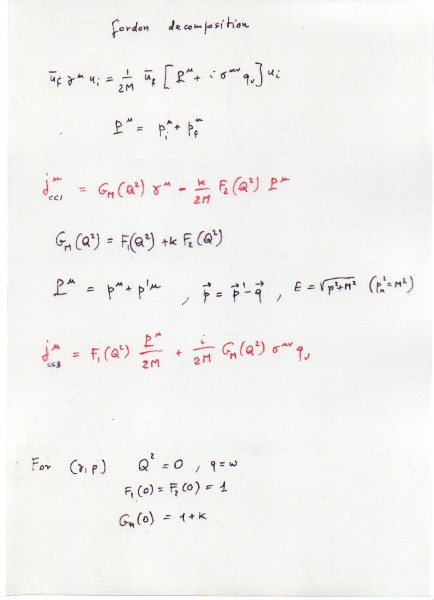 Gordon decomposition
ū_f γ^μ u_i = 1/2M ū_f [P^μ + i σ^μν q_ν] u_i
P^μ = p_i^μ + p_f^μ
j^μ_cc1 = G_M(Q²) γ^μ − k/2M F₂(Q²) P^μ
G_M(Q²) = F₁(Q²) + k F₂(Q²)
P^μ = p^μ + p'^μ , p⃗ = p⃗' − q⃗ , E = √p²+M² (p_μ² = M²)
j^μ_cc3 = F₁(Q²) P^μ/2M + i/2M G_M(Q²) σ^μν q_ν
For (γ,p) Q² = 0 , q = ω
F₁(0) = F₂(0) = 1
G_M(0) = 1+k